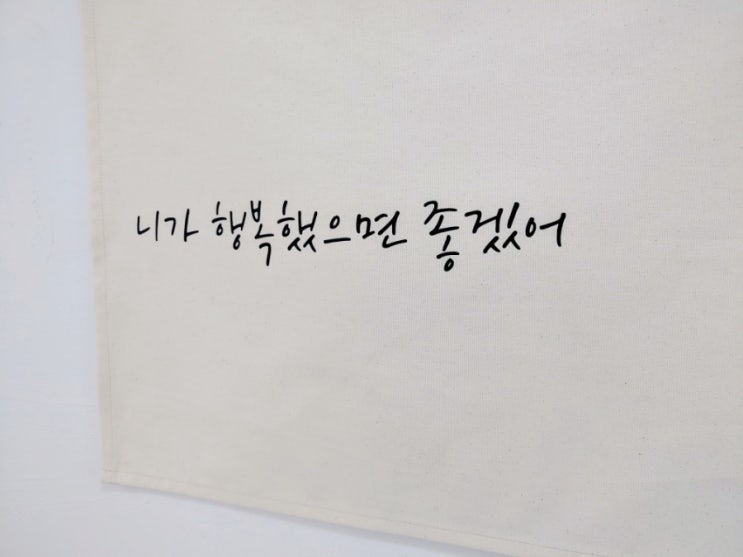 니가 행복했으면 좋겠어